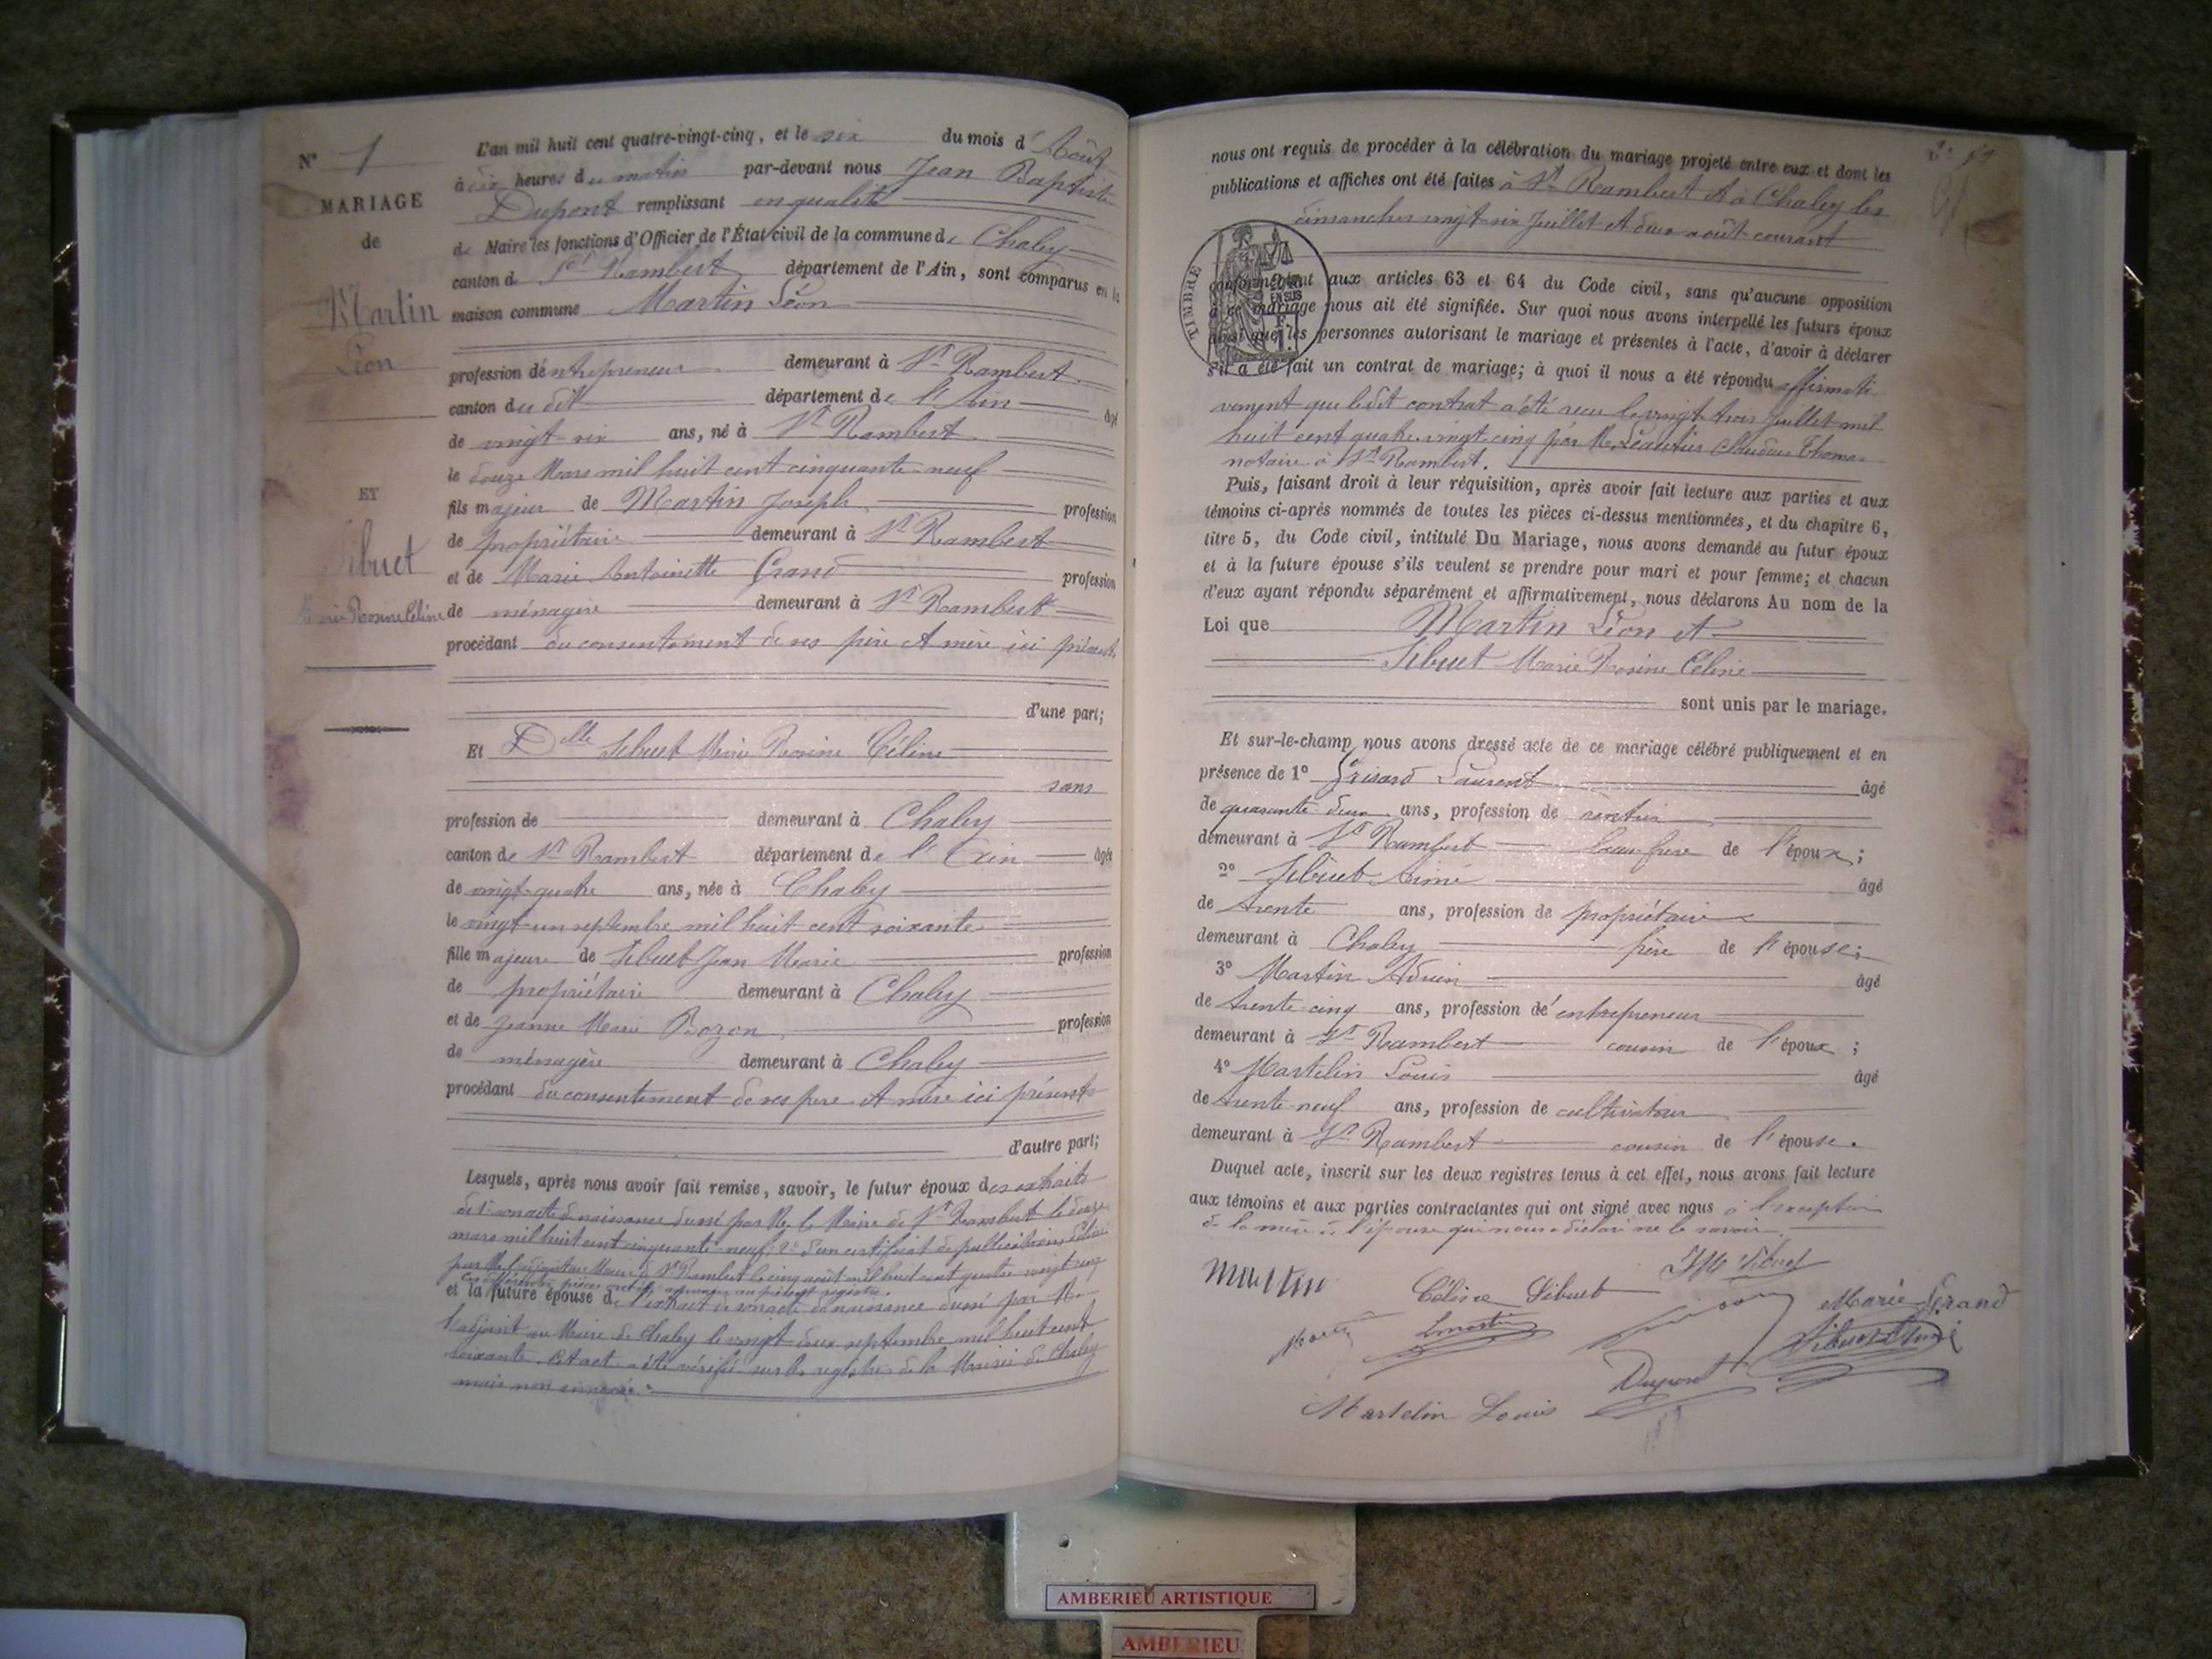 N° 1
MARIAGE
de
Martin
Léon
ET
Sibuet
Marie Rosine Céline
L'an mil huit cent quatre-vingt-cinq, et le six du mois d'Août
à dix heures du matin par-devant nous Jean Baptiste
Dupont remplissant en qualité
de Maire les fonctions d'Officier de l'État civil de la commune de Chaley
canton de St Rambert département de l'Ain, sont comparus en la
maison commune Martin Léon
profession d'entrepreneur demeurant à St Rambert
canton du dit département de l'Ain âgé
de vingt-six ans, né à St Rambert
le douze Mars mil huit cent cinquante-neuf
fils majeur de Martin Joseph profession
de propriétaire demeurant à St Rambert
et de Marie Antoinette Grand profession
de ménagère demeurant à St Rambert
procédant du consentement de ses père et mère ici présents
d'une part;
Et Delle Sibuet Marie Rosine Céline
sans
profession de demeurant à Chaley
canton de St Rambert département de l'Ain âgée
de vingt-quatre ans, née à Chaley
le vingt-un septembre mil huit cent soixante
fille majeure de Sibuet Jean Marie profession
de propriétaire demeurant à Chaley
et de Jeanne Marie Bozon profession
de ménagère demeurant à Chaley
procédant du consentement de ses père et mère ici présents
d'autre part;
Lesquels, après nous avoir fait remise, savoir, le futur époux des extraits
de 1° son acte de naissance dressé par Mr le Maire de St Rambert le douze
mars mil huit cent cinquante-neuf; 2° d'un certificat de publications délivré
par Mr l'adjoint au Maire de St Rambert le cinq août mil huit cent quatre vingt cinq
ces différentes pièces ont été annexées au présent registre.
et la future épouse de l'extrait de son acte de naissance dressé par Mr
l'adjoint au Maire de Chaley le vingt-deux septembre mil huit cent
soixante. Cet acte a été vérifié sur les registres de la Mairie de Chaley
mais non annexée.
nous ont requis de procéder à la célébration du mariage projeté entre eux et dont les
publications et affiches ont été faites à St Rambert et à Chaley les
dimanches vingt-six Juillet et deux août courant
TIMBRE
conformément aux articles 63 et 64 du Code civil, sans qu'aucune opposition
à ce mariage nous ait été signifiée. Sur quoi nous avons interpellé les futurs époux
ainsi que les personnes autorisant le mariage et présentes à l'acte, d'avoir à déclarer
s'il a été fait un contrat de mariage; à quoi il nous a été répondu affirmati
vement que ledit contrat a été reçu le vingt trois Juillet mil
huit cent quatre-vingt cinq par Me Claudius Thomas
notaire à St Rambert.
Puis, faisant droit à leur réquisition, après avoir fait lecture aux parties et aux
témoins ci-après nommés de toutes les pièces ci-dessus mentionnées, et du chapitre 6,
titre 5, du Code civil, intitulé Du Mariage, nous avons demandé au futur époux
et à la future épouse s'ils veulent se prendre pour mari et pour femme; et chacun
d'eux ayant répondu séparément et affirmativement, nous déclarons Au nom de la
Loi que Martin Léon et
Sibuet Marie Rosine Céline
sont unis par le mariage.
Et sur-le-champ nous avons dressé acte de ce mariage célébré publiquement et en
présence de 1° Grisard Laurent âgé
de quarante-deux ans, profession de rentier
demeurant à St Rambert beau frère de l'époux;
2° Sibuet Aimé âgé
de trente ans, profession de propriétaire
demeurant à Chaley frère de l'épouse;
3° Martin Adrien âgé
de trente-cinq ans, profession d'entrepreneur
demeurant à St Rambert cousin de l'époux;
4° Martelin Louis âgé
de trente-neuf ans, profession de cultivateur
demeurant à St Rambert cousin de l'épouse.
Duquel acte, inscrit sur les deux registres tenus à cet effet, nous avons fait lecture
aux témoins et aux parties contractantes qui ont signé avec nous à l'exception
de la mère de l'épouse qui nous a déclaré ne le savoir.
Martin
Céline Sibuet
JM Sibuet
Marie Grand
Lmartin
Sibuet Aimé
Dupont
Martelin Louis
AMBERIEU ARTISTIQUE
AMBERIEU